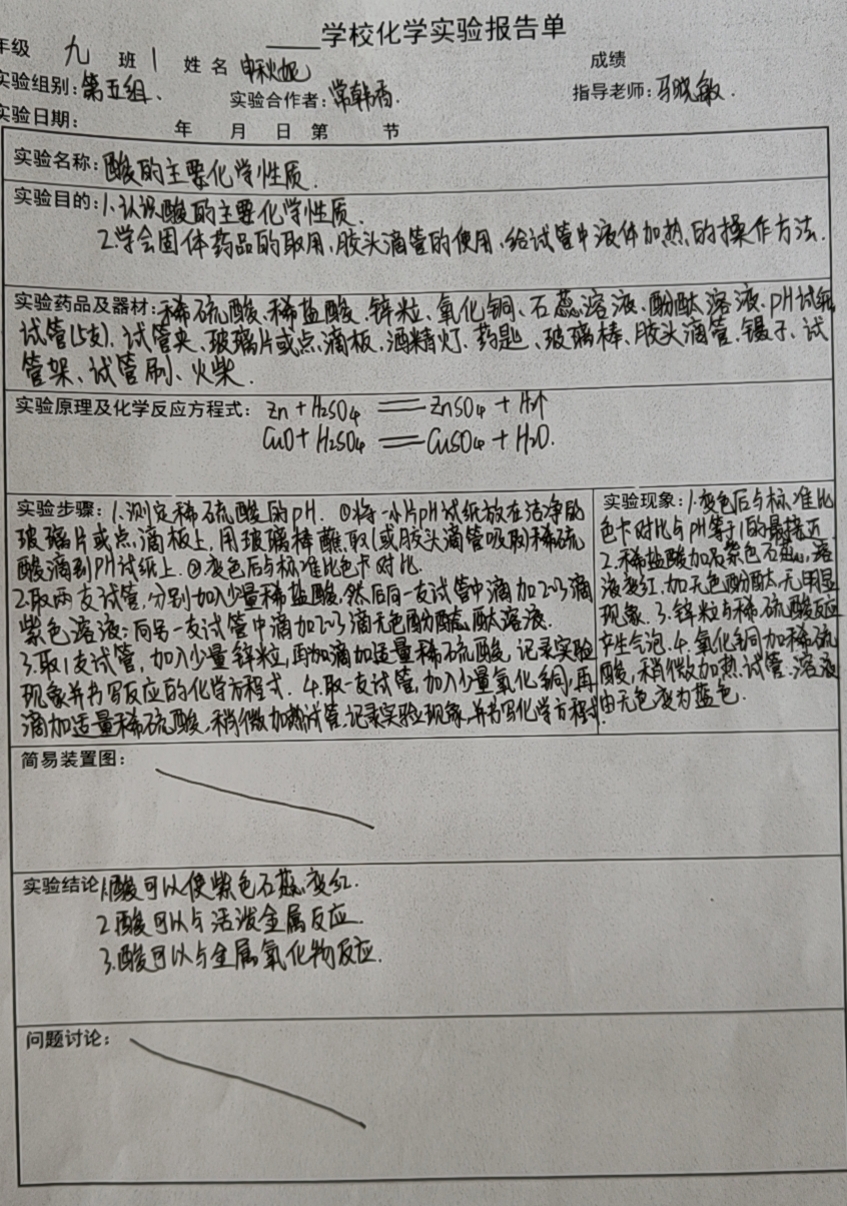 ___学校化学实验报告单
年级 九 班 1 姓名 申秋妮 成绩
实验组别:第五组、 实验合作者:常韩香. 指导老师:马晓敏.
实验日期: 年 月 日 第 节
实验名称:酸的主要化学性质.
实验目的:1.认识酸的主要化学性质.
2.学会固体药品的取用、胶头滴管的使用、给试管中液体加热的操作方法.
实验药品及器材:稀硫酸、稀盐酸、锌粒、氧化铜、石蕊溶液、酚酞溶液、pH试纸
试管(5支)、试管夹、玻璃片或点滴板、酒精灯、药匙、玻璃棒、胶头滴管、镊子、试
管架、试管刷、火柴.
实验原理及化学反应方程式: Zn+H2SO4 == ZnSO4+H2↑
CuO+H2SO4 == CuSO4+H2O.
实验步骤:1.测定稀硫酸的pH. ①将一小片pH试纸放在洁净的
玻璃片或点滴板上,用玻璃棒蘸取(或胶头滴管吸取)稀硫
酸滴到PH试纸上.②变色后与标准比色卡对比.
2.取两支试管,分别加入少量稀盐酸,然后向一支试管中滴加2~3滴
紫色溶液;向另一支试管中滴加2~3滴无色酚酞溶液.
3.取1支试管,加入少量锌粒,再加滴加适量稀硫酸,记录实验
现象并书写反应的化学方程式. 4.取一支试管,加入少量氧化铜,再
滴加适量稀硫酸,稍微加热试管,记录实验现象,并书写化学方程式.
实验现象:1.变色后与标准比
色卡对比与PH等于1的最接近.
2.稀盐酸加紫色石蕊,溶
液变红,加无色酚酞,无明显
现象. 3.锌粒与稀硫酸反应
产生气泡.4.氧化铜加稀硫
酸,稍微加热试管,溶液
由无色变为蓝色.
简易装置图:
实验结论1.酸可以使紫色石蕊变红.
2.酸可以与活泼金属反应.
3.酸可以与金属氧化物反应.
问题讨论: